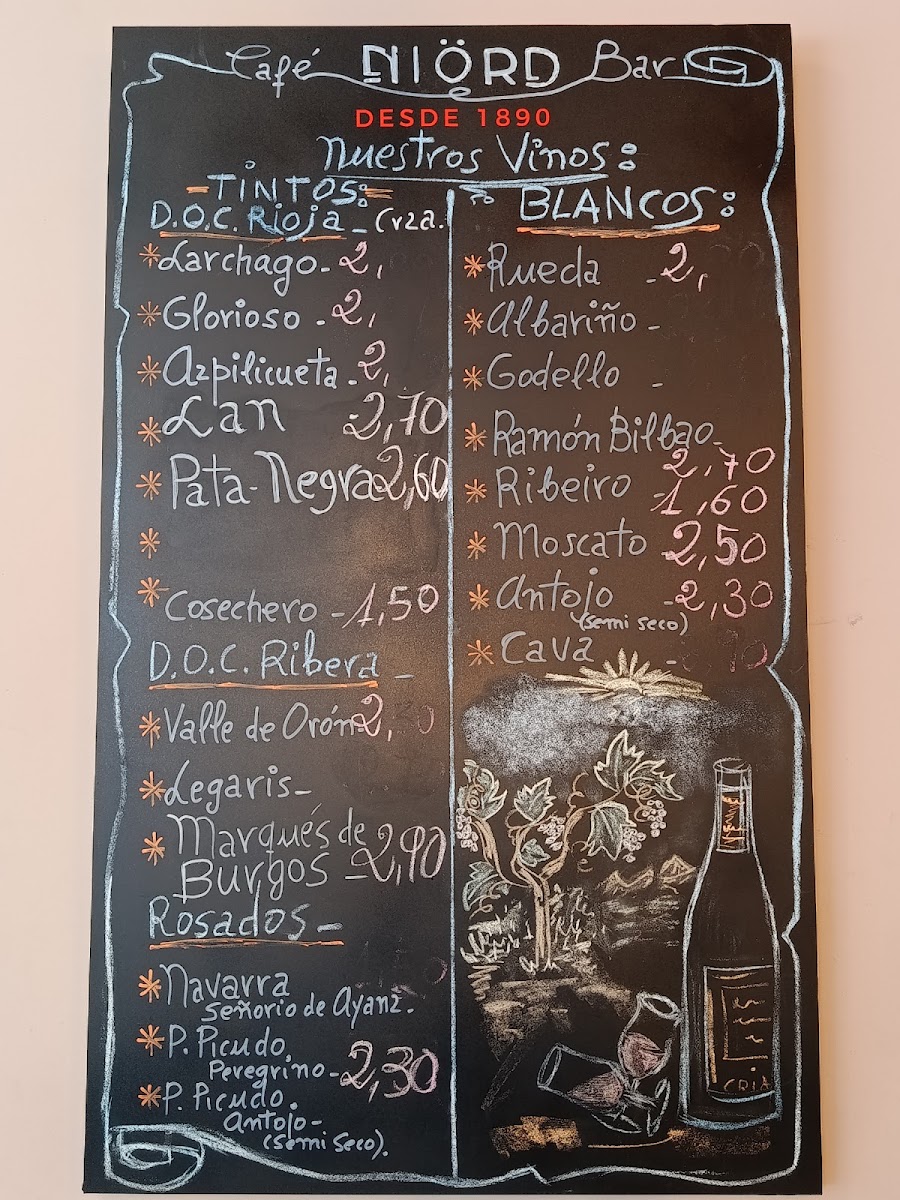 Café NIÖRD Bar
DESDE 1890
Nuestros Vinos:
TINTOS:
D.O.C. Rioja - Crza.
* Larchago - 2,
* Glorioso - 2,
* Azpilicueta - 2,
* Lan - 2,70
* Pata-Negra 2,60
*
* Cosechero - 1,50
D.O.C. Ribera -
* Valle de Orón - 2,
* Legaris -
* Marqués de
Burgos - 2,90
Rosados -
* Navarra
Señorio de Ayanz.
* P. Picudo.
Peregrino - 2,30
* P. Picudo.
Antojo -
(semi seco).
BLANCOS:
* Rueda - 2,
* Albariño -
* Godello -
* Ramón Bilbao -
2,70
* Ribeiro - 1,60
* Moscato - 2,50
* Antojo - 2,30
(semi seco)
* Cava - 90
CRIA